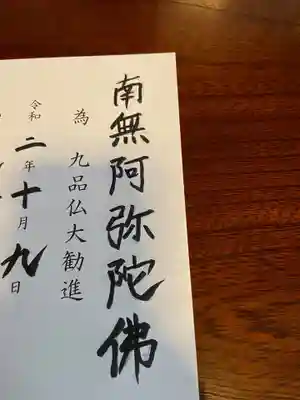 南無阿弥陀佛
為 九品仏大勧進
令和二年十月九日